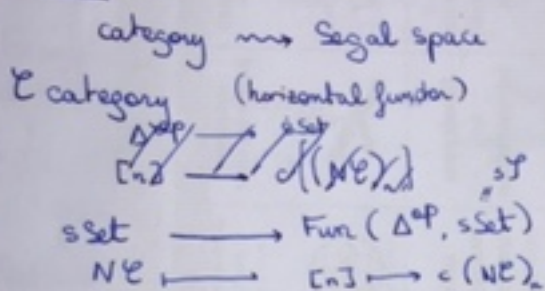 category ⇝ Segal space
𝒞 category (horizontal functor)
Δᵒᵖ → sSet
[n] → c((N𝒞)ₙ)
sSet → Fun(Δᵒᵖ, sSet)
N𝒞 ↦ [n] ↦ c(N𝒞)ₙ